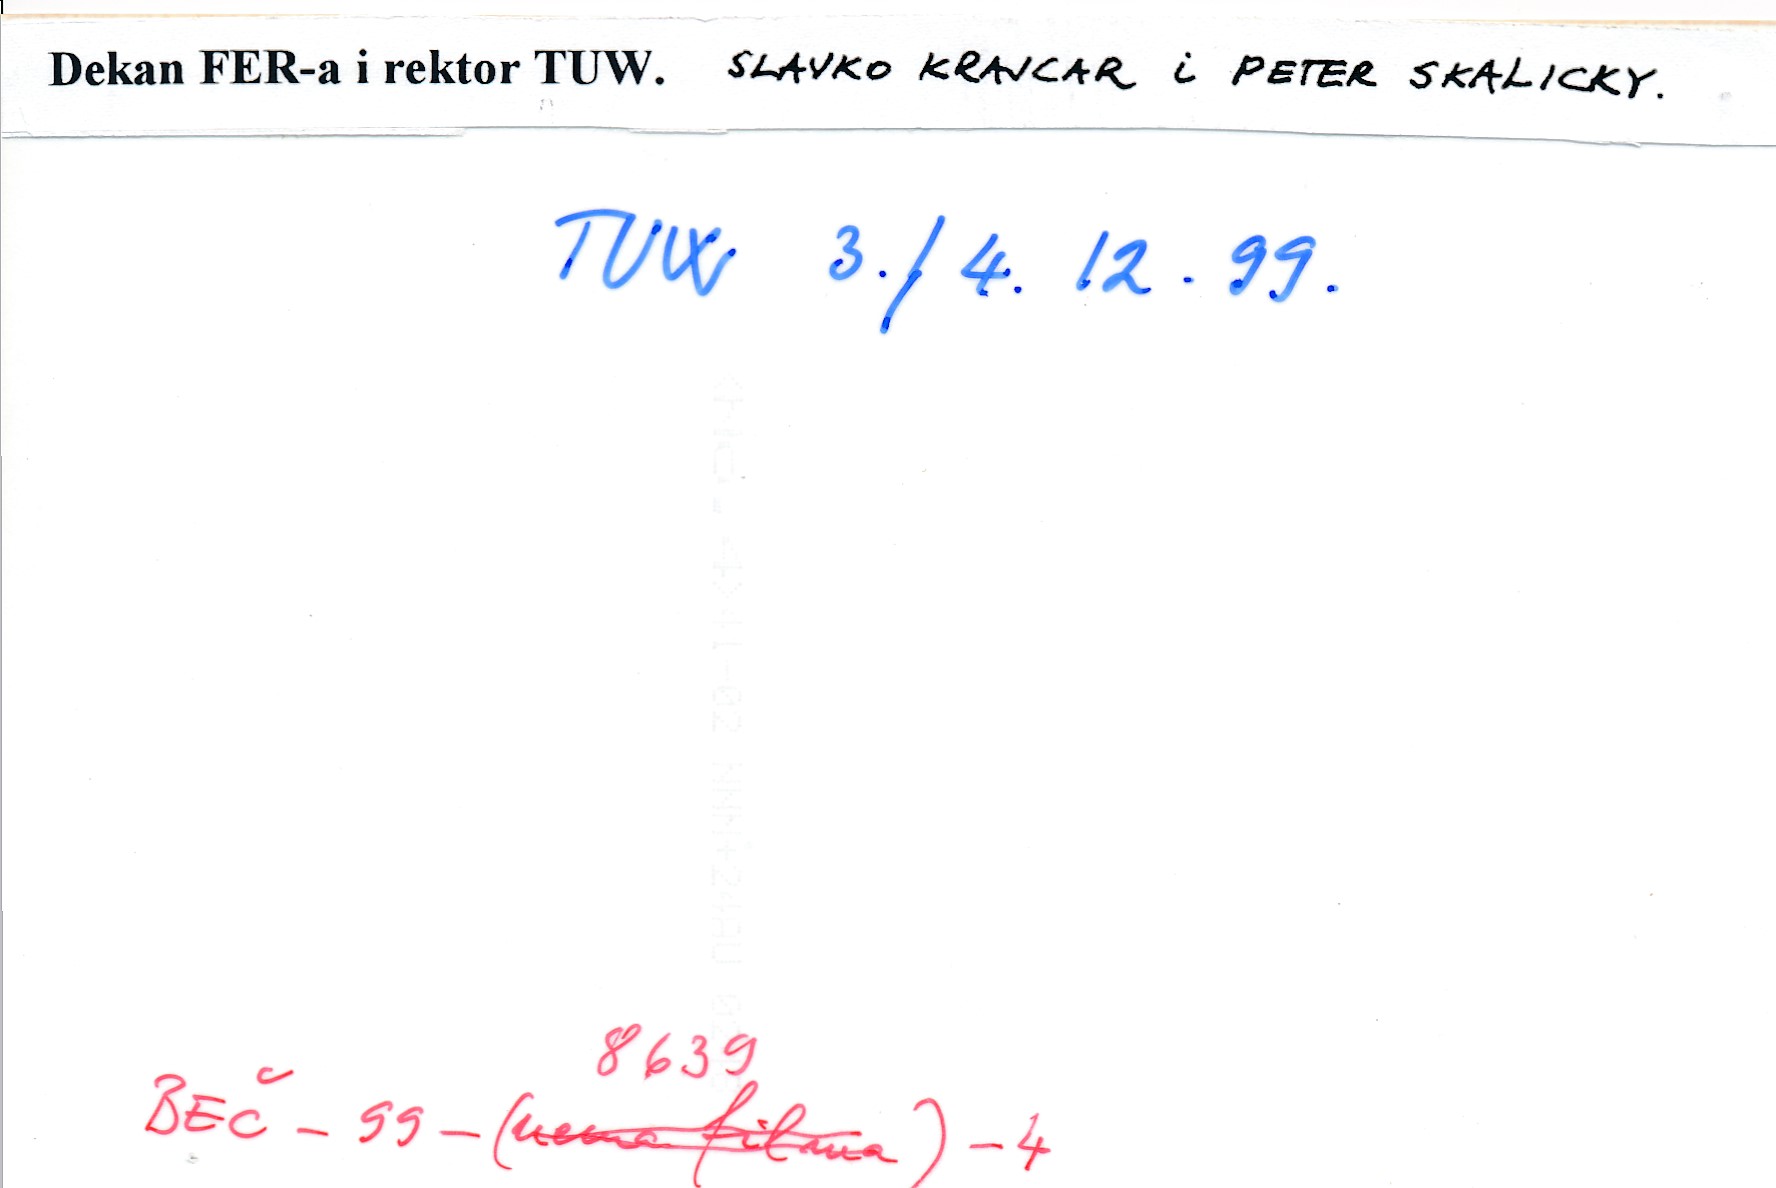 Dekan FER-a i rektor TUW. SLAVKO KRAJCAR i PETER SKALICKY.
TUW 3./4. 12. 99.
8639
BEČ - 99 - (nema filma) - 4